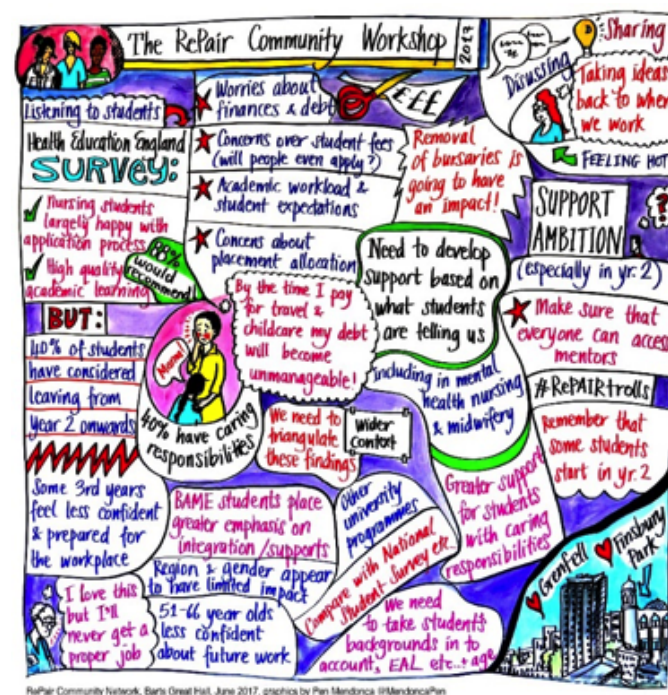 The RePair Community Workshop
2017
Listening to students
Health Education England
SURVEY:
Nursing students
largely happy with
application process
High quality
academic learning
88%
would
recommend
BUT:
40% of students
have considered
leaving from
Year 2 onwards
Some 3rd years
feel less confident
& prepared for
the workplace
I love this
but I'll
never get a
proper job
Worries about
finances & debt
£££
Concerns over student fees
(will people even apply?)
Academic workload &
student expectations
Concens about
placement allocation
Removal
of bursaries is
going to have
an impact!
Mama!
40% have caring
responsibilities
By the time I pay
for travel &
childcare my debt
will become
unmanageable!
We need to
triangulate
these findings
Wider
Context
BAME students place
greater emphasis on
integration/supports
Region & gender appear
to have limited impact
51-66 year olds
less confident
about future work
Need to develop
support based on
what students
are telling us
including in mental
health nursing
& midwifery
Other
university
programmes
Compare with National
Student Survey etc.
Greater support
for students
with caring
responsibilities
We need
to take students
backgrounds in to
account, EAL etc..+ age
Discussing
Sharing
Taking ideas
back to wher
we work
FEELING HOT
SUPPORT
AMBITION
(especially in yr. 2)
Make sure that
everyone can acces
mentors
#RePAIRtrolls
Remember that
some students
start in yr. 2
Grenfell
Finsbury
Park
RePair Community Network, Barts Great Hall, June 2017, graphics by Pen Mendonca @MendoncaPen